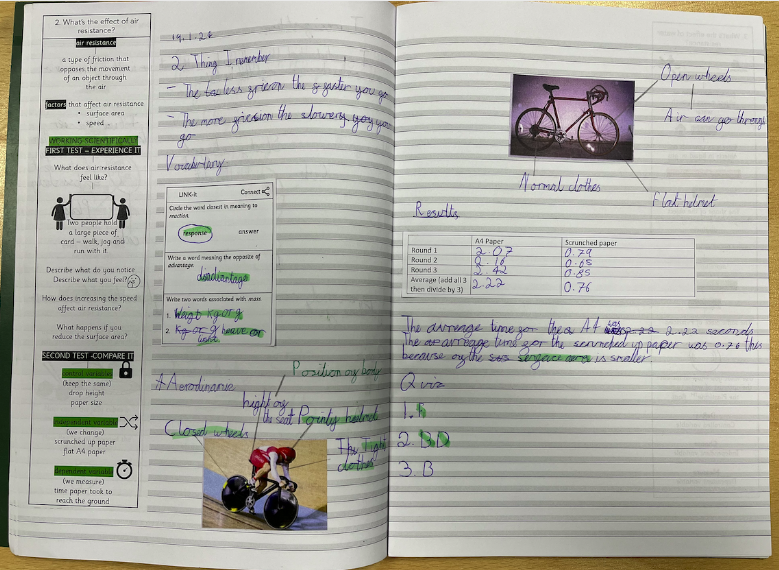 2. What's the effect of air
resistance?
air resistance
a type of friction that
opposes the movement
of an object through
the air
factors that affect air resistance
• surface area
• speed
WORKING SCIENTIFICALLY
FIRST TEST – EXPERIENCE IT
What does air resistance
feel like?
Two people hold
a large piece of
card – walk, jog and
run with it.
Describe what do you notice.
Describe what you feel?
How does increasing the speed
affect air resistance?
What happens if you
reduce the surface area?
SECOND TEST -COMPARE IT
control variables
(keep the same)
drop height
paper size
independent variable
(we change)
scrunched up paper
flat A4 paper
dependent variable
(we measure)
time paper took to
reach the ground
19.1.24
2 Thing I remember
- The less fricon the faster you go
- The more fricsion the slowery you
go
Vocabulary
LINK-it
Connect
Circle the word closest in meaning to
reaction
response answer
Write a word meaning the opposite of
advantage.
disadvantage
Write two words associated with mass
1. Weight kg or g
2. kg or g
Position of body
hight of
the seat Pointy helmet
Closed wheels
Tight
clothes
Open wheels
Air can go through
Normal clothes
Flat helmet
Results
A4 Paper Scrunched paper
Round 1 2.07 0.79
Round 2 0.65
Round 3 2.42 0.85
Average (add all 3
then divide by 3) 2.22 0.76
The average time for the A4 was 2.22 seconds
The average time for the scrunched up paper was 0.76 this
because of the surface area is smaller
Quiz
1.
2. B D
3. B